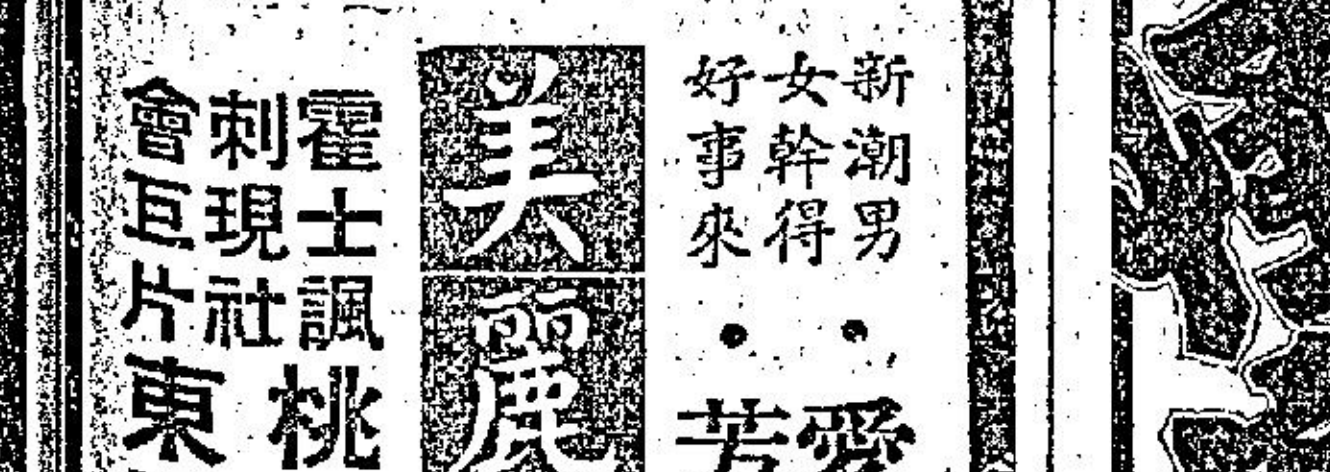 新潮男
女幹得
好事來
愛
美麗
霍士諷
刺現社
會巨片
桃
東